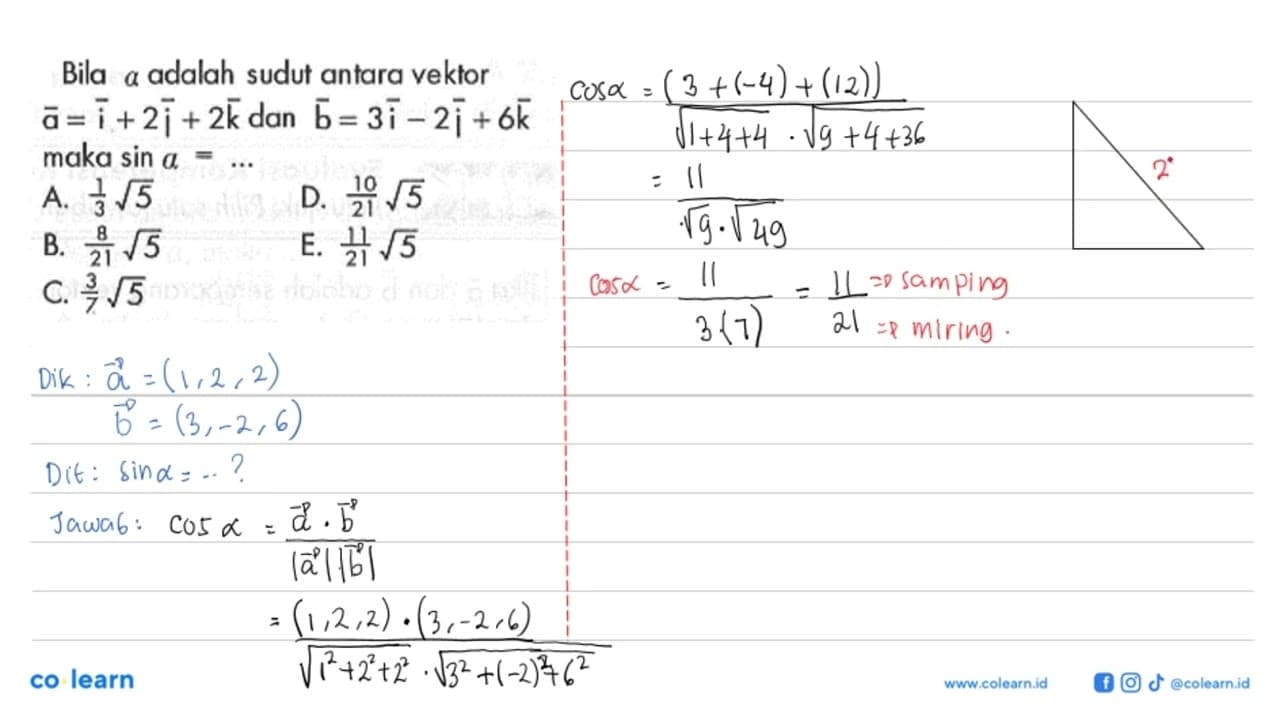 Bila α adalah sudut antara vektor
a̅ = i̅ + 2j̅ + 2k̅ dan b̅ = 3i̅ − 2j̅ + 6k̅
maka sin α = ...
A. 1/3 √5 D. 10/21 √5
B. 8/21 √5 E. 11/21 √5
C. 3/7 √5
Dik : a⃗ = (1, 2, 2)
b⃗ = (3, -2, 6)
Dit : sin α = ... ?
Jawab : cos α = a⃗ . b⃗ / |a⃗| |b⃗|
= (1, 2, 2) • (3, -2, 6) / √1² + 2² + 2² . √3² + (-2)² + 6²
cos α = (3 + (-4) + (12)) / √1+4+4 . √9+4+36
= 11 / √9 . √49
cos α = 11 / 3(7) = 11/21 => samping
=> miring .
2
co learn
www.colearn.id @colearn.id